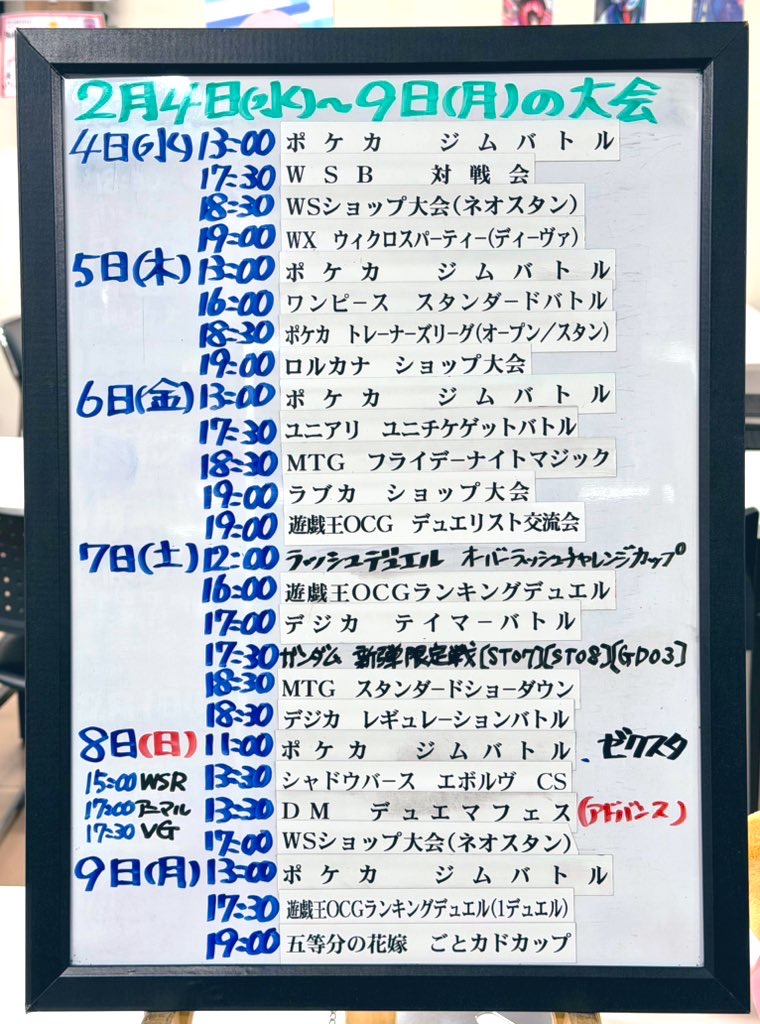 2月4日(水)~9日(月)の大会
4日(水) 13:00 ポケカ ジムバトル
17:30 WSB 対戦会
18:30 WSショップ大会(ネオスタン)
19:00 WX ウィクロスパーティー(ディーヴァ)
5日(木) 13:00 ポケカ ジムバトル
16:00 ワンピース スタンダードバトル
18:30 ポケカ トレーナーズリーグ(オープン/スタン)
19:00 ロルカナ ショップ大会
6日(金) 13:00 ポケカ ジムバトル
17:30 ユニアリ ユニチケゲットバトル
18:30 MTG フライデーナイトマジック
19:00 ラブカ ショップ大会
19:00 遊戯王OCG デュエリスト交流会
7日(土) 12:00 ラッシュデュエル オーバーラッシュチャレンジカップ
16:00 遊戯王OCGランキングデュエル
17:00 デジカ テイマーバトル
17:30 ガンダム 新弾限定戦[ST07][ST08][GD03]
18:30 MTG スタンダードショーダウン
18:30 デジカ レギュレーションバトル
8日(日) 11:00 ポケカ ジムバトル . ゼクスタ
15:00 WSR 13:30 シャドウバース エボルヴ CS
17:00 アニマル 13:30 DM デュエマフェス (アドバンス)
17:30 VG 17:00 WSショップ大会(ネオスタン)
9日(月) 13:00 ポケカ ジムバトル
17:30 遊戯王OCGランキングデュエル(1デュエル)
19:00 五等分の花嫁 ごとカドカップ